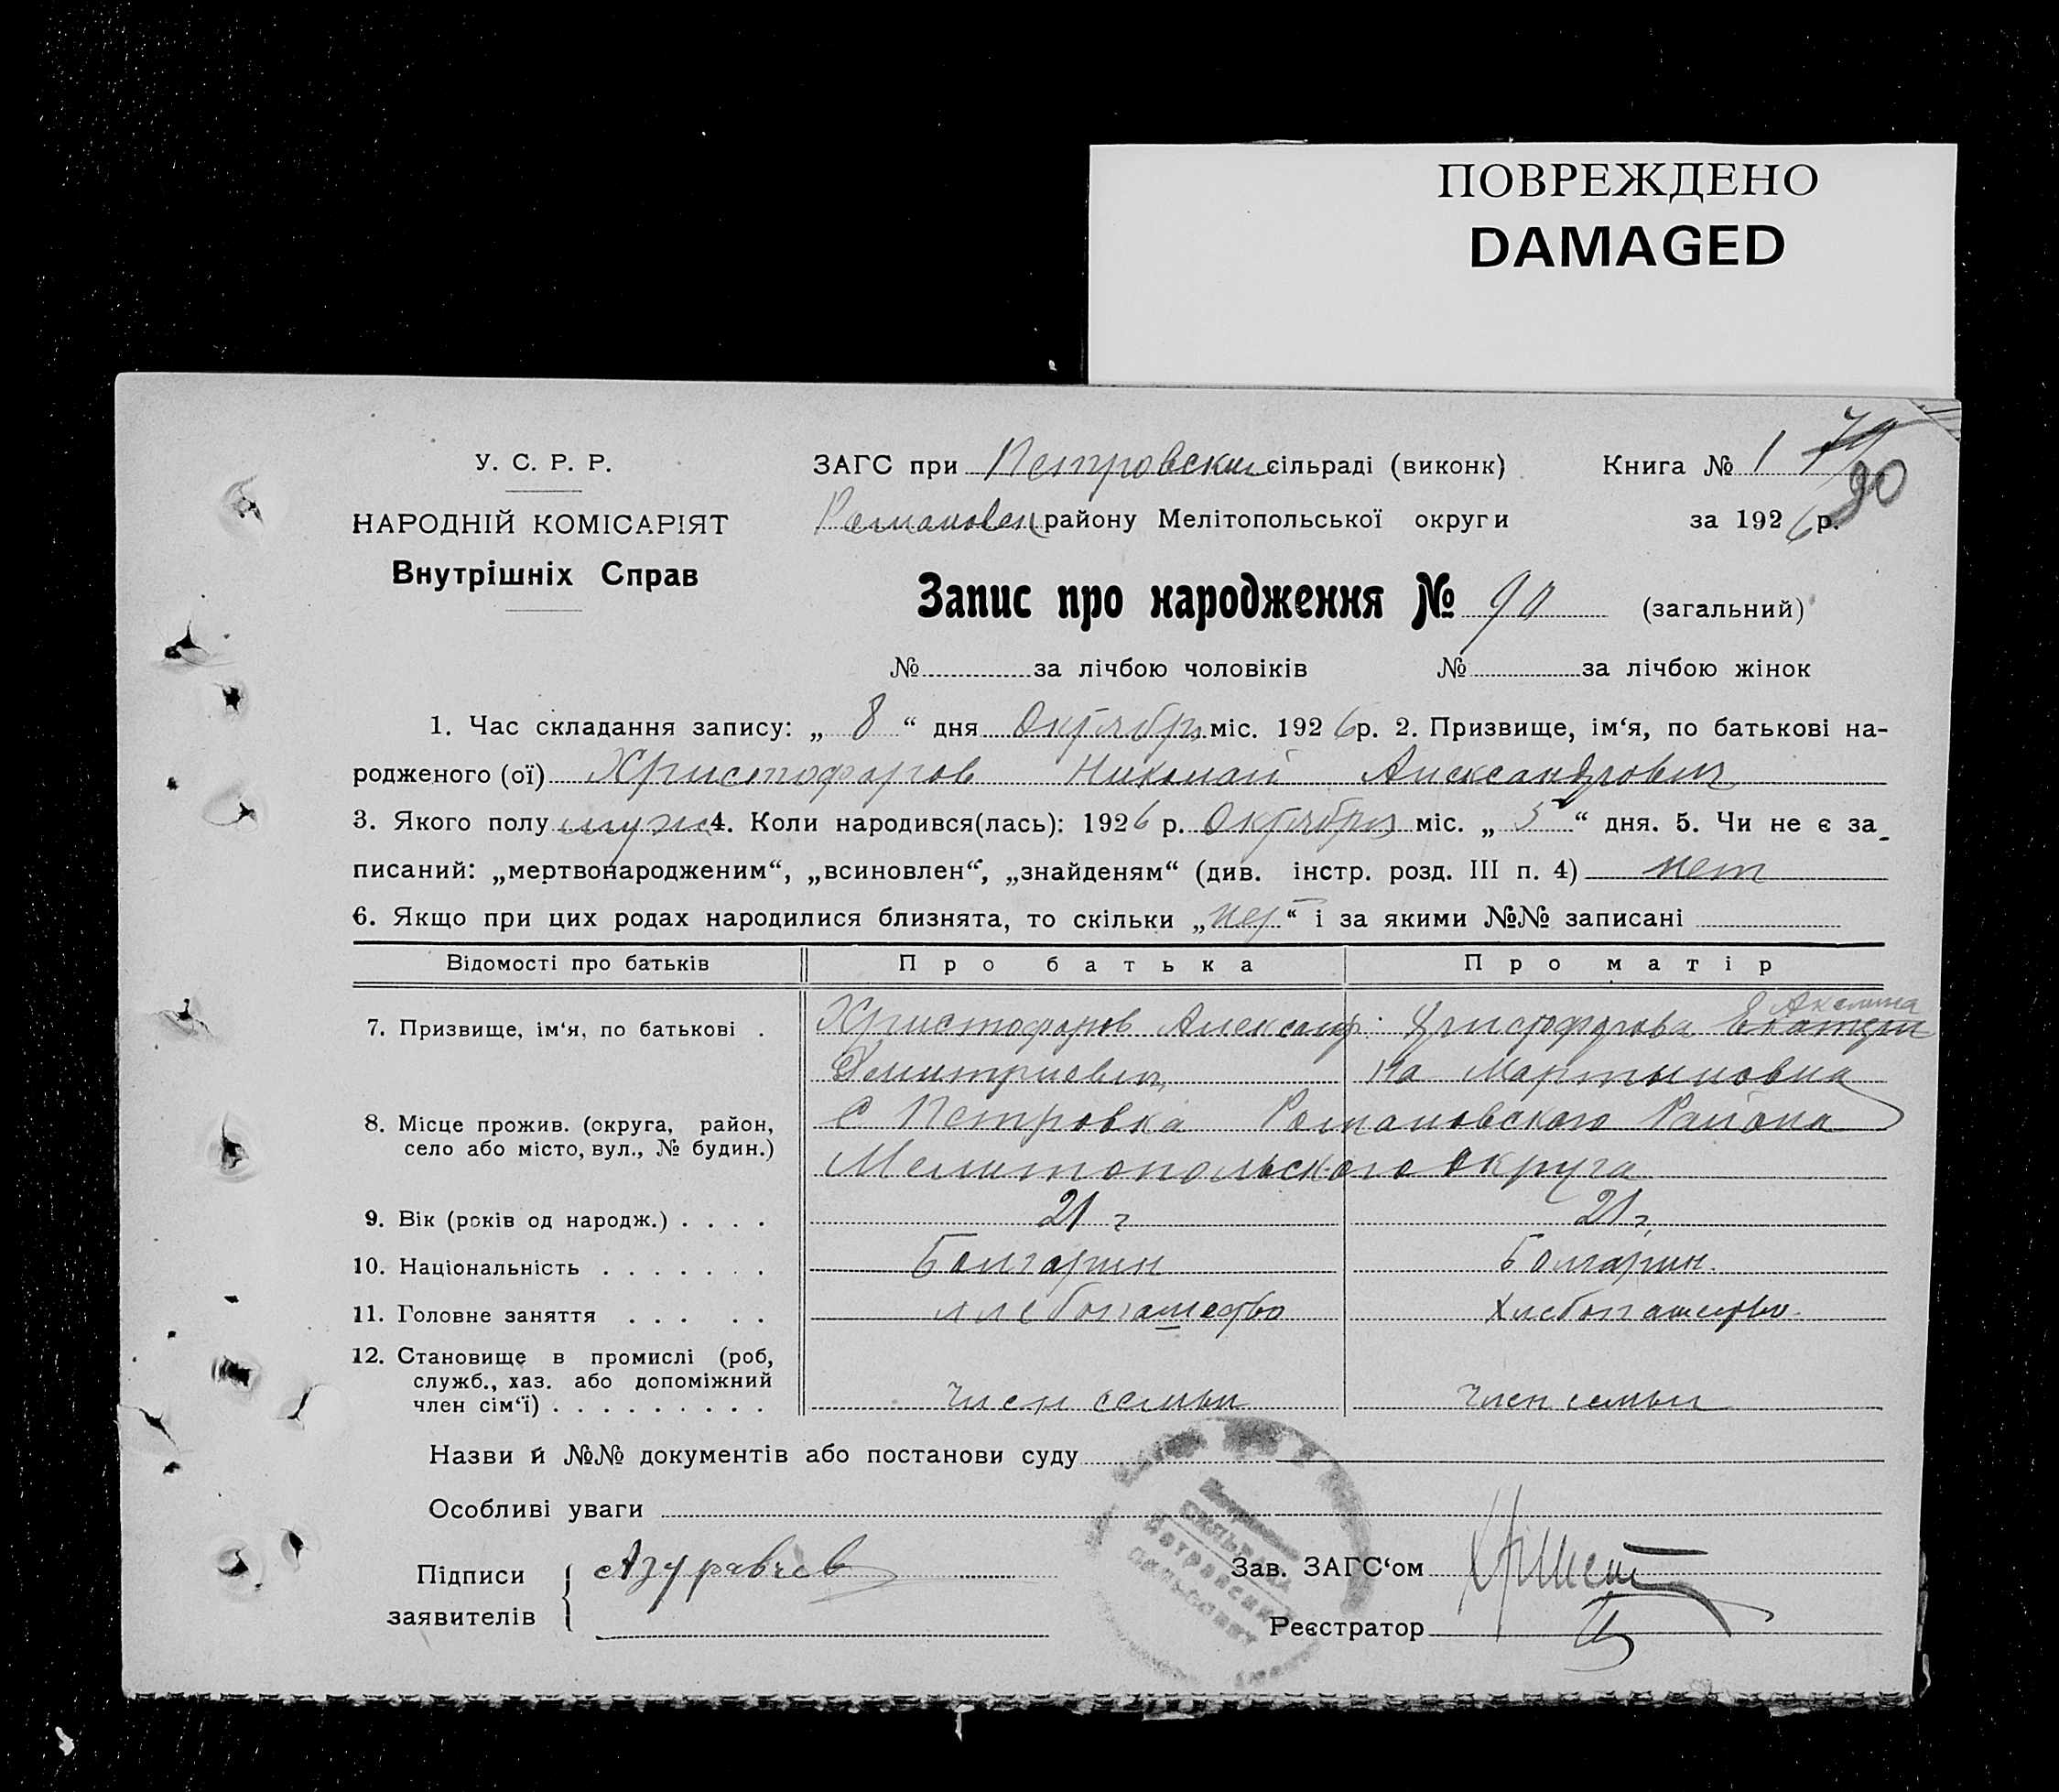 ПОВРЕЖДЕНО
DAMAGED
У. С. Р. Р.
НАРОДНІЙ КОМІСАРІЯТ
Внутрішніх Справ
ЗАГС при Петровским сільраді (виконк)
Романовск району Мелітопольської округи
Книга № 1 90
за 1926 р.
Запис про народження № 90 (загальний)
№ за лічбою чоловіків № за лічбою жінок
1. Час складання запису: „ 8 “ дня Октября міс. 1926 р. 2. Призвище, ім‘я, по батькові на-
родженого (ої) Христофоров Николай Александрович
3. Якого полу муж 4. Коли народився(лась): 1926 р. Октября міс. „ 5 “ дня. 5. Чи не є за-
писаний: „мертвонародженим“, „всиновлен“, „знайденям“ (див. інстр. розд. III п. 4) нет
6. Якщо при цих родах народилися близнята, то скільки „нет“ і за якими №№ записані
Відомості про батьків Про батька Про матір
7. Призвище, ім‘я, по батькові . Христофоров Александр Христофорова Екатери
Димитриевич на Мартыновна
8. Місце прожив. (округа, район, село або місто, вул., № будин.) с Петровка Романовского Района
Мелитопольского округа
9. Вік (років од народж.) . . . . 21 г 21 г
10. Національність . . . . . . . Болгарин Болгарин.
11. Головне заняття . . . . . хлебопашество Хлебопашество
12. Становище в промислі (роб,
служб., хаз. або допоміжний
член сім‘ї) . . . . . . . . . член семьи член семьи
Назви й №№ документів або постанови суду
Особливі уваги
Підписи
заявителів
Зав. ЗАГС‘ом
Реєстратор